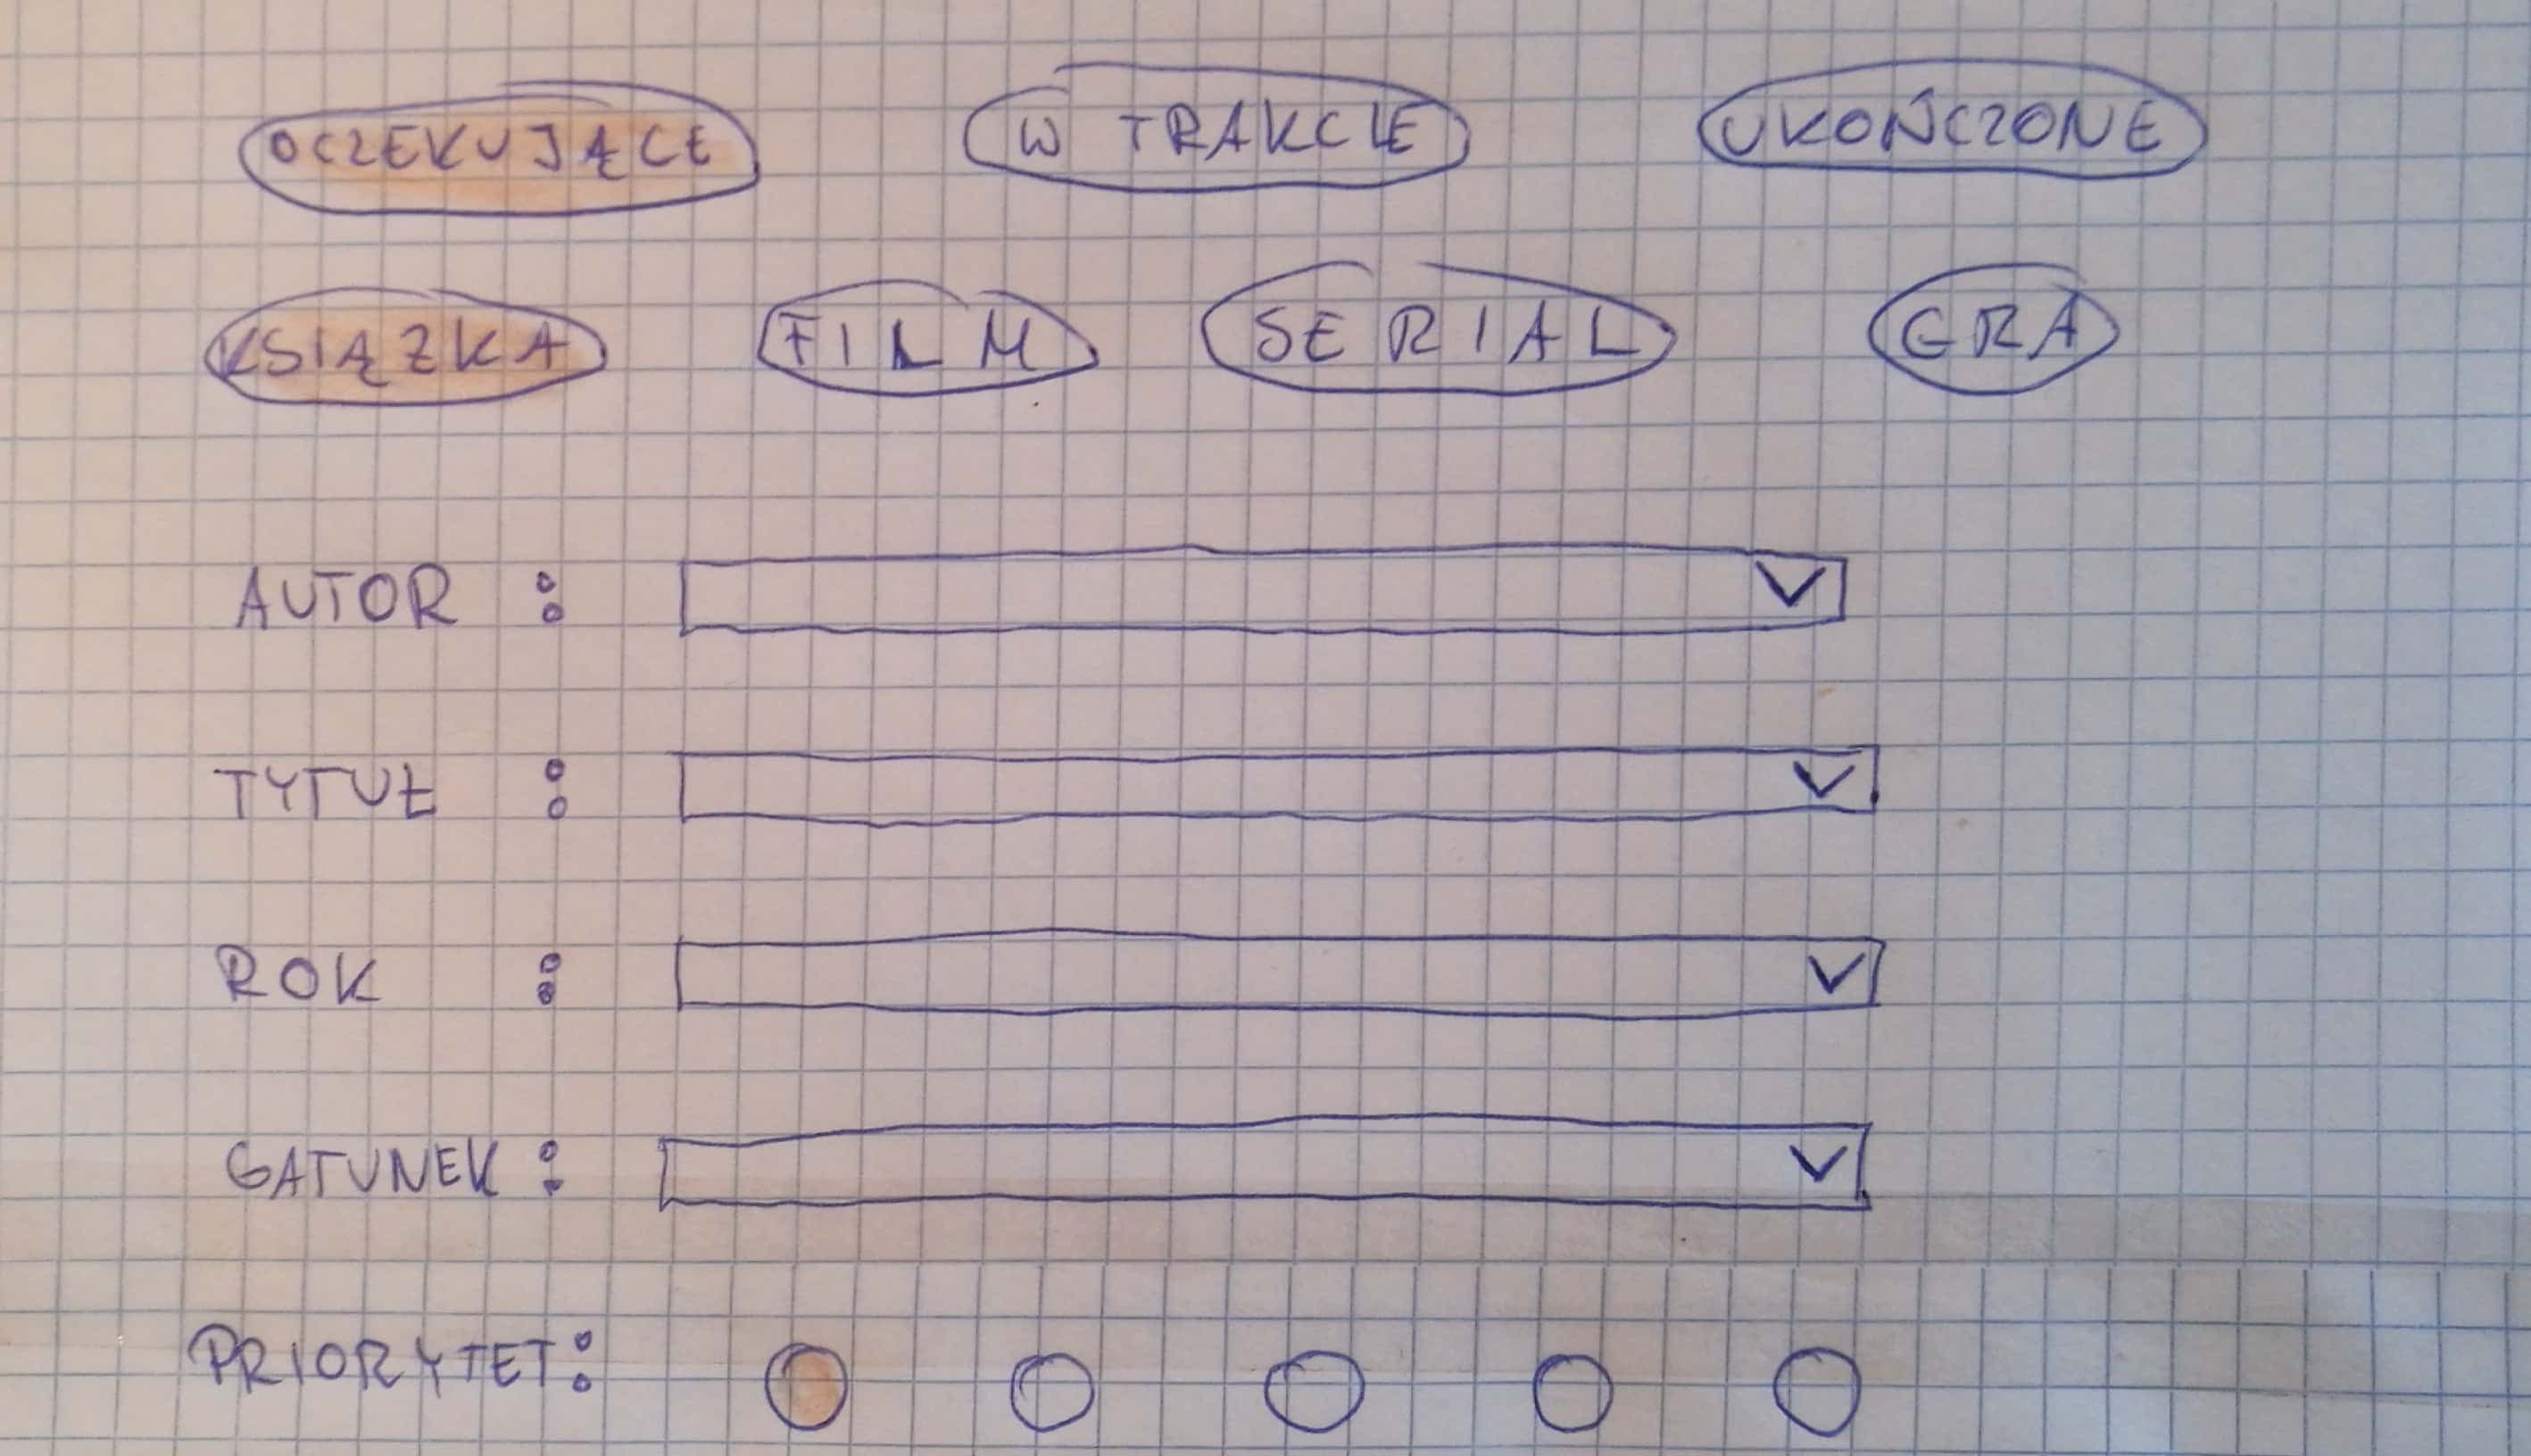 OCZEKUJĄCE W TRAKCIE UKOŃCZONE
KSIĄŻKA FILM SERIAL GRA
AUTOR :
TYTUŁ :
ROK :
GATUNEK :
PRIORYTET: